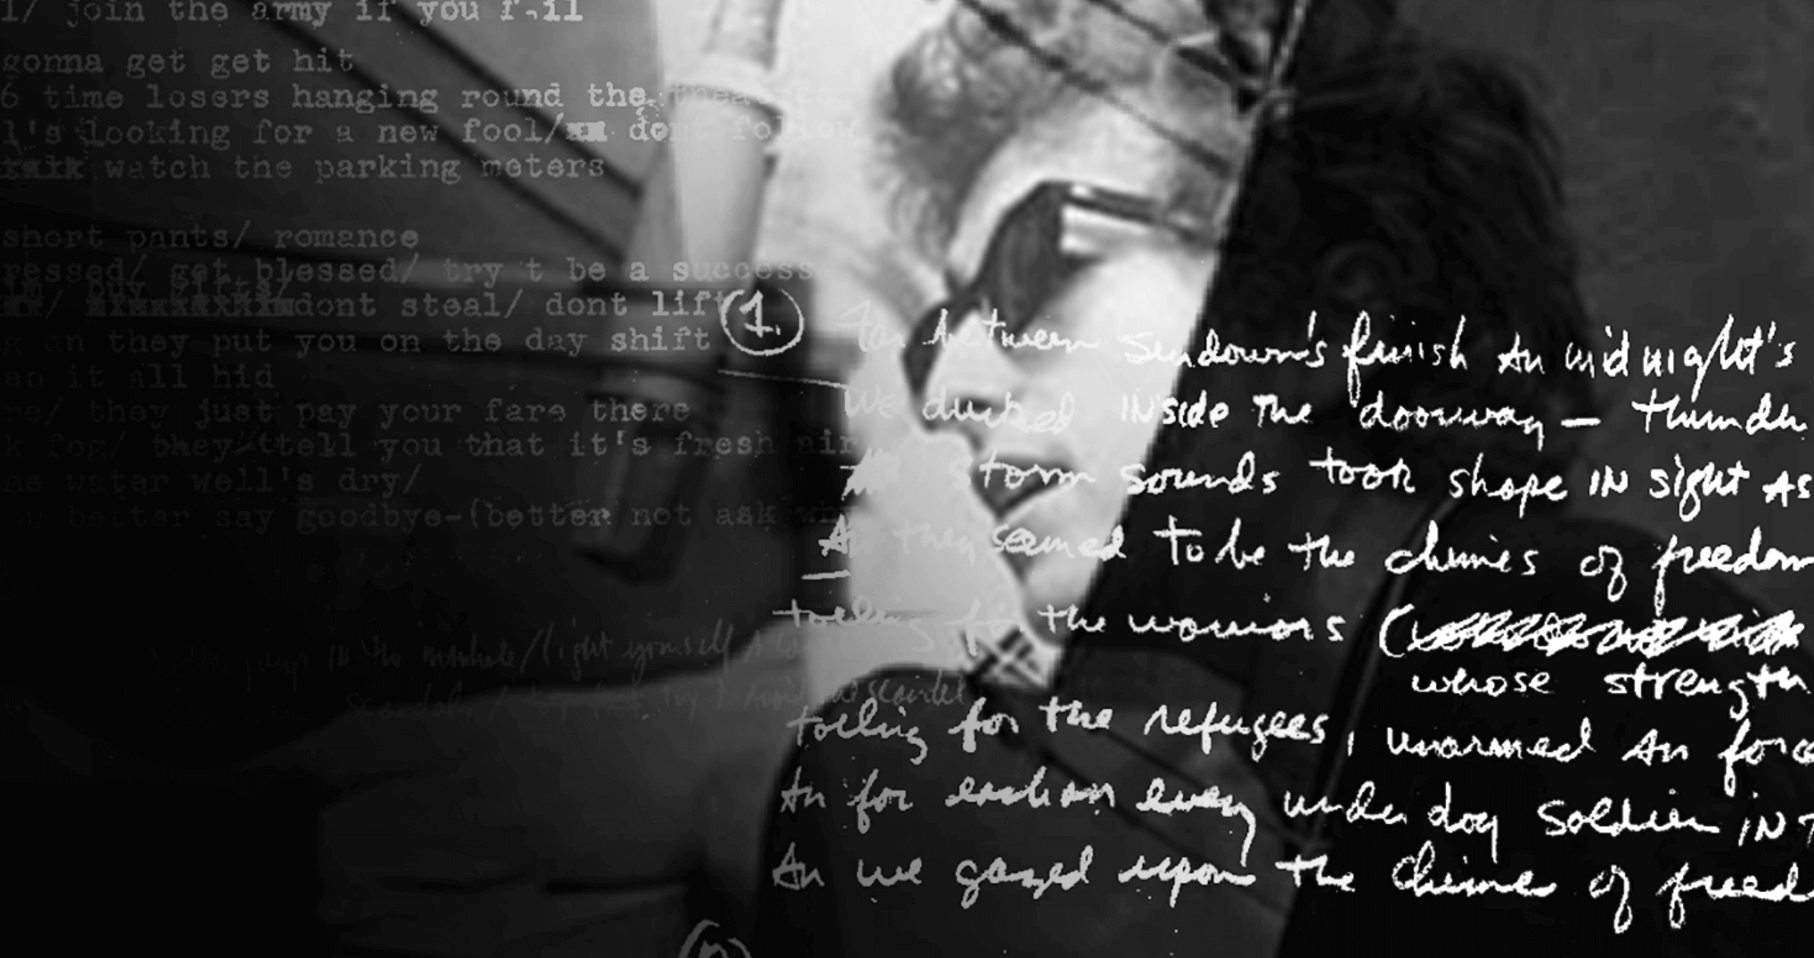 1/ join the army if you fail
gonna get get hit
6 time losers hanging round the theatres
l's looking for a new fool/ dont follow
watch the parking meters
short pants/ romance
ressed/ get blessed/ try t be a success
buy gifts/
dont steal/ dont lift
an they put you on the day shift
ep it all hid
re/ they just pay your fare there
k fog/ they tell you that it's fresh air
he water well's dry/
ou better say goodbye-(better not ask wh
jump IN the manhole/light yourself A
scandals / try t avoid the scandel
1. Far between sundown's finish An midnight's
We ducked INside The doorway — thunder
storm sounds took shape IN sight As
An they seemed to be the chimes of freedom
tolling for the warriors (
whose strength
tolling for the refugees, unarmed An force
An for each an every underdog soldier IN t
An we gazed upon the chimes of freed